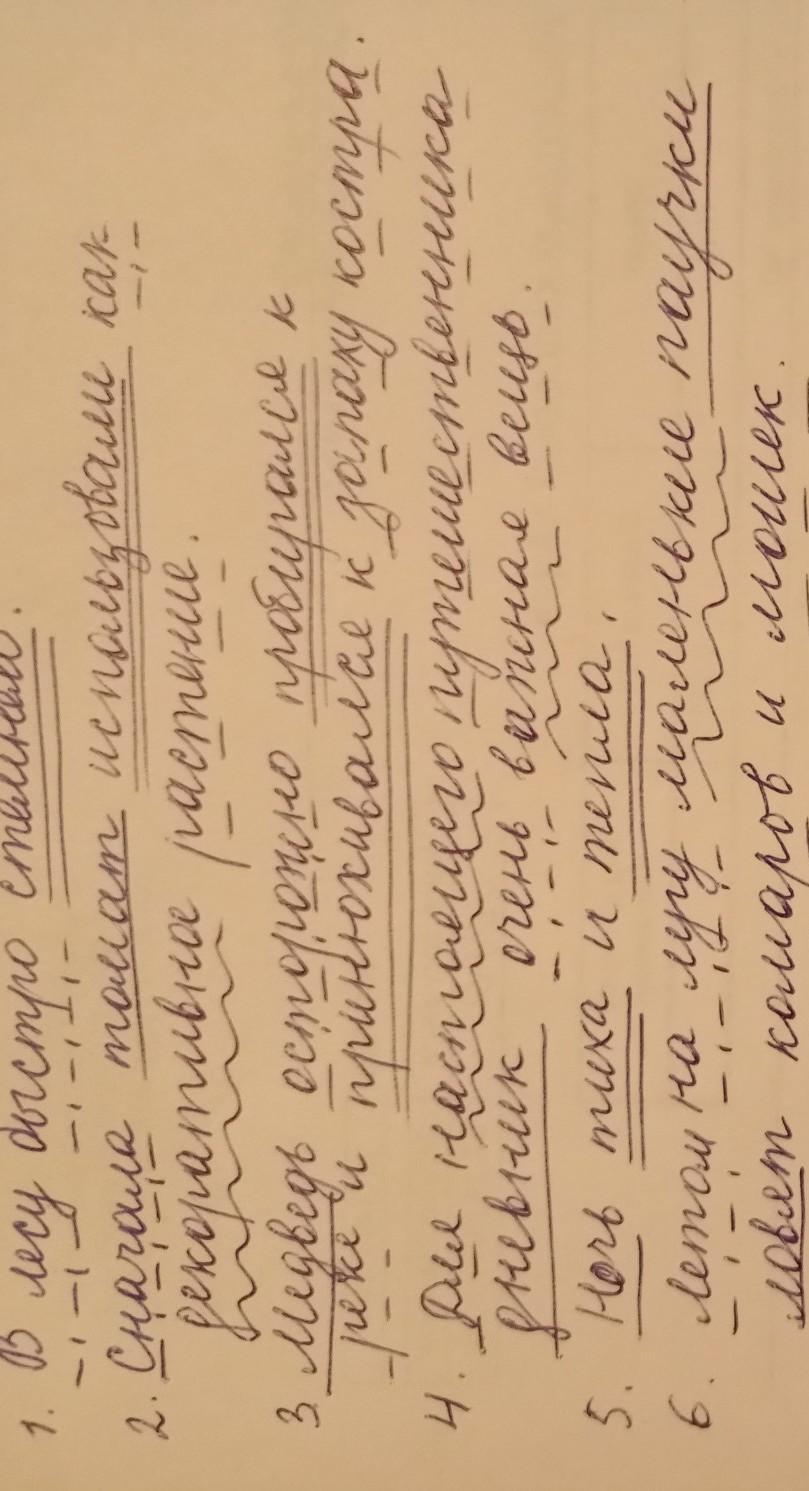 1. В лесу быстро стемнело.
2. Сначала томат использовали как
декоративное растение.
3. Медведь осторожно пробирался к
реке и принюхивался к запаху костра.
4. Для настоящего путешественника
дневник очень важная вещь.
5. Ночь тиха и тепла.
6. Летом на лугу маленькие паучки
ловят комаров и мошек.